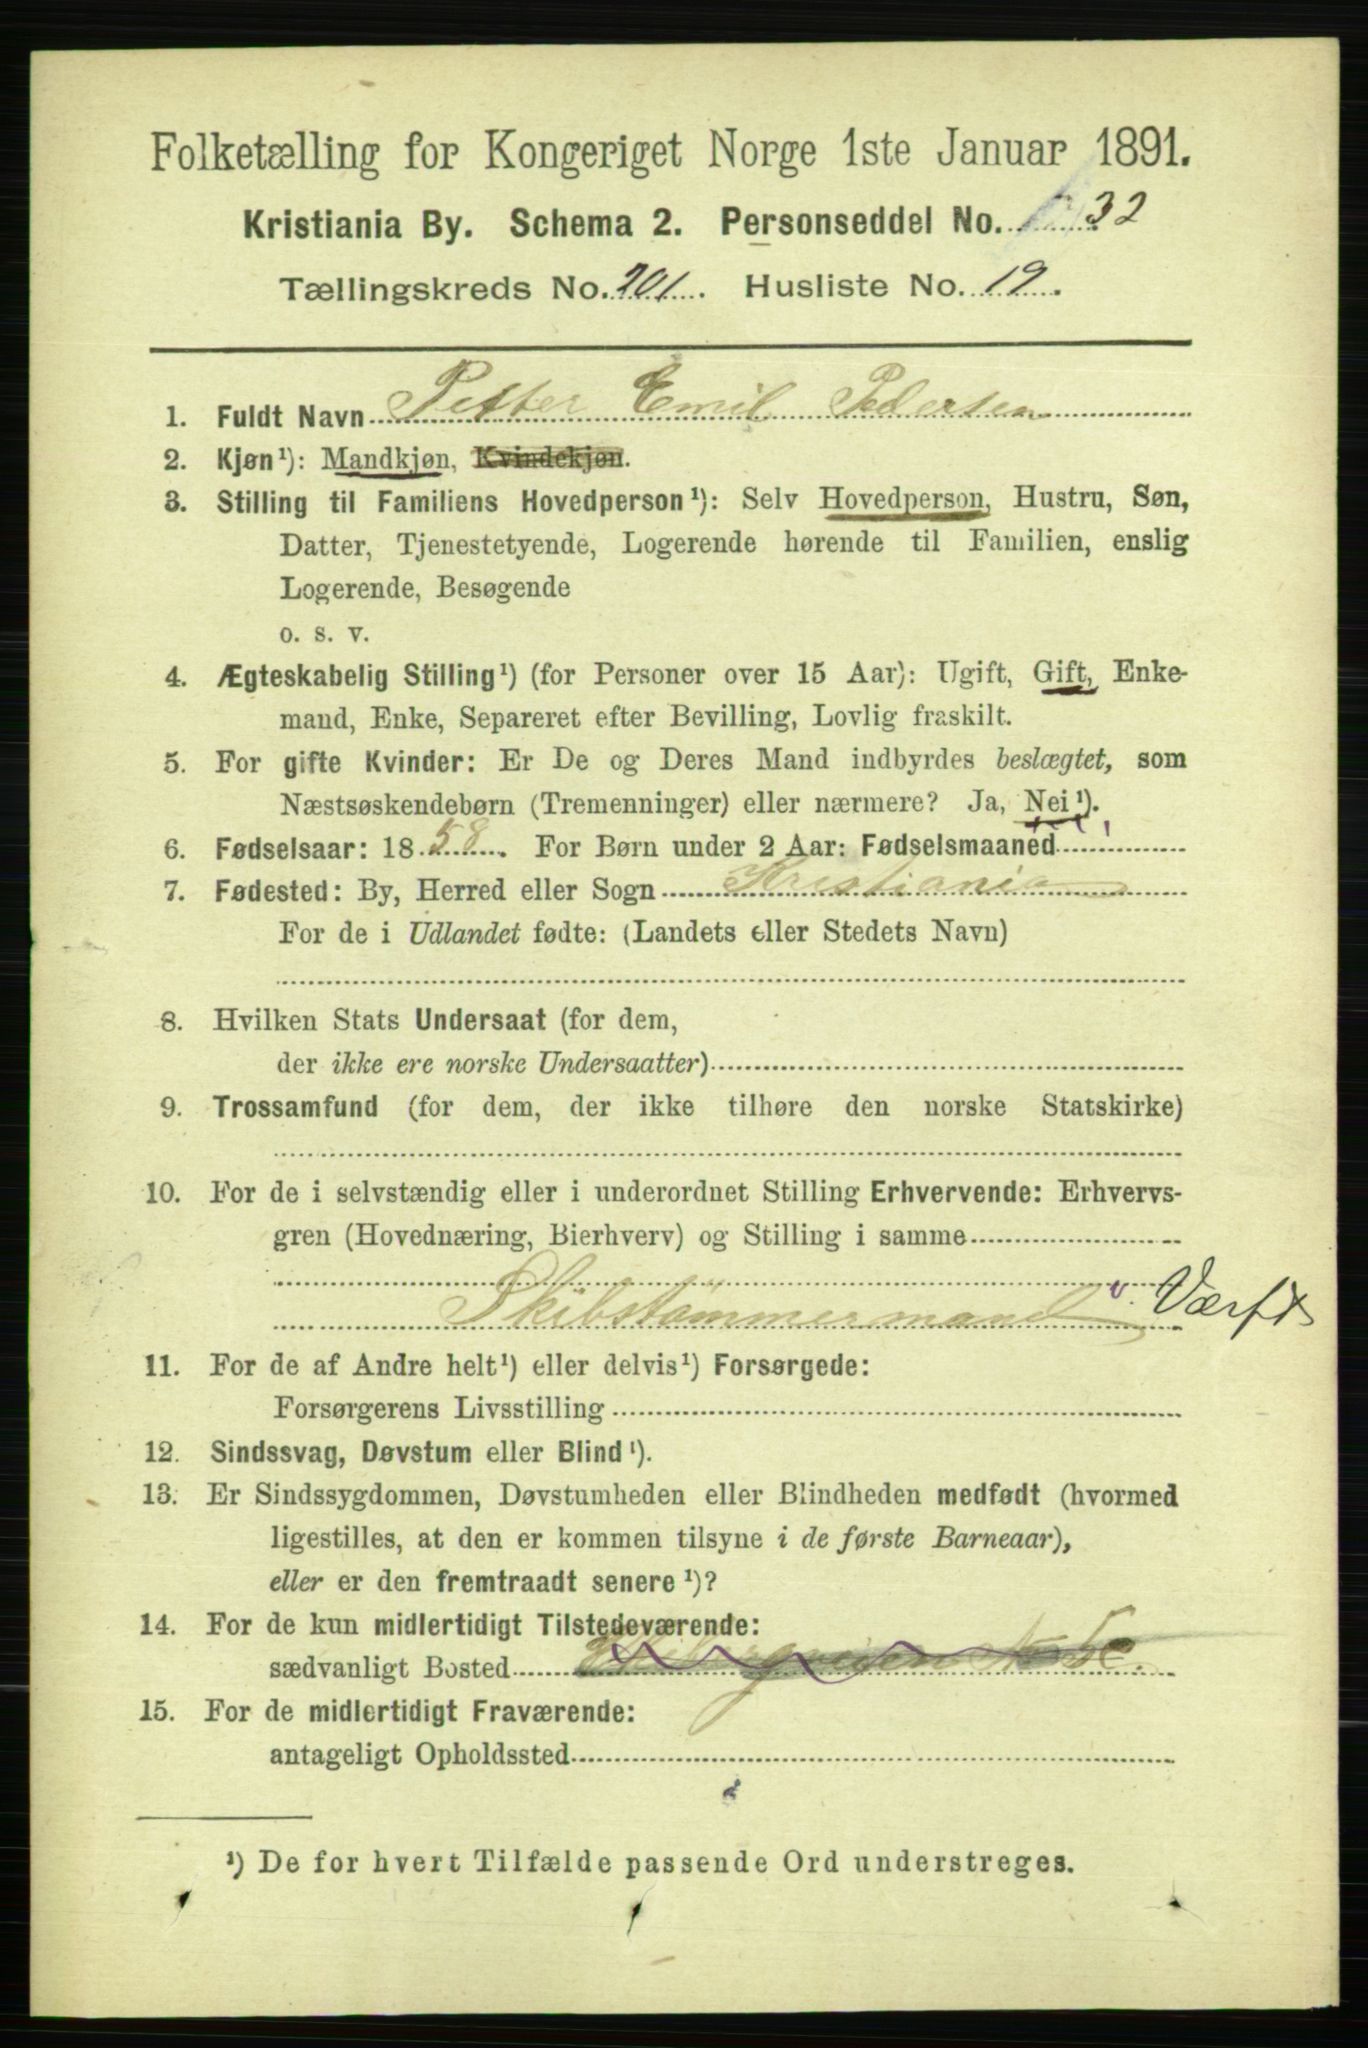 Folketælling for Kongeriget Norge 1ste Januar 1891.
Kristiania By. Schema 2. Personseddel No. 32
Tællingskreds No. 201. Husliste No. 19.
1. Fuldt Navn Petter Emil Pedersen
2. Kjøn¹): Mandkjøn, Kvindekjøn.
3. Stilling til Familiens Hovedperson¹): Selv Hovedperson, Hustru, Søn,
Datter, Tjenestetyende, Logerende hørende til Familien, enslig
Logerende, Besøgende
o. s. v.
4. Ægteskabelig Stilling¹) (for Personer over 15 Aar): Ugift, Gift, Enke-
mand, Enke, Separeret efter Bevilling, Lovlig fraskilt.
5. For gifte Kvinder: Er De og Deres Mand indbyrdes beslægtet, som
Næstsøskendebørn (Tremenninger) eller nærmere? Ja, Nei¹).
6. Fødselsaar: 1858. For Børn under 2 Aar: Fødselsmaaned
7. Fødested: By, Herred eller Sogn Kristiania
For de i Udlandet fødte: (Landets eller Stedets Navn)
8. Hvilken Stats Undersaat (for dem,
der ikke ere norske Undersaatter)
9. Trossamfund (for dem, der ikke tilhøre den norske Statskirke)
10. For de i selvstændig eller i underordnet Stilling Erhvervende: Erhvervs-
gren (Hovednæring, Bierhverv) og Stilling i samme
Skibstømmermand v. Værft
11. For de af Andre helt¹) eller delvis¹) Forsørgede:
Forsørgerens Livsstilling
12. Sindssvag, Døvstum eller Blind¹).
13. Er Sindssygdommen, Døvstumheden eller Blindheden medfødt (hvormed
ligestilles, at den er kommen tilsyne i de første Barneaar),
eller er den fremtraadt senere¹)?
14. For de kun midlertidigt Tilstedeværende:
sædvanligt Bosted
15. For de midlertidigt Fraværende:
antageligt Opholdssted
¹) De for hvert Tilfælde passende Ord understreges.